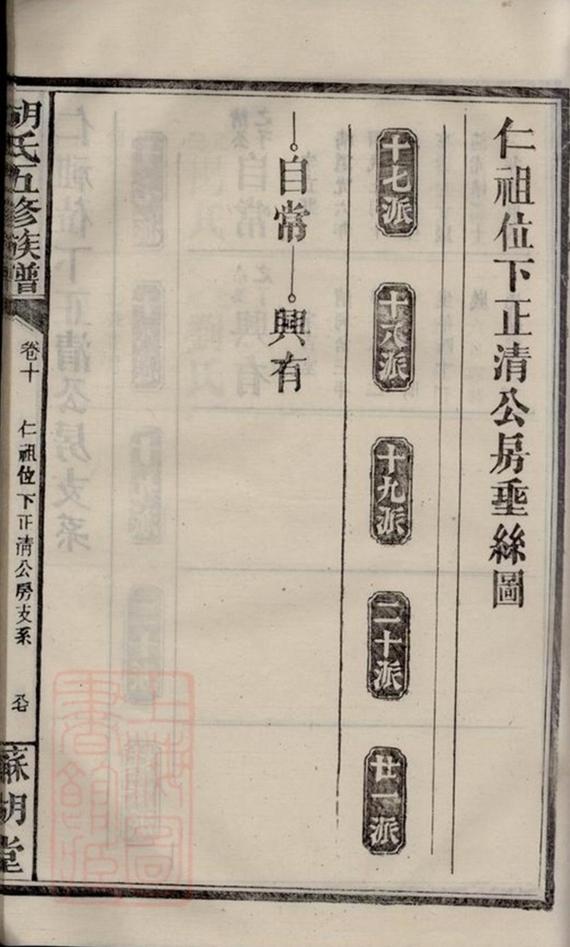 仁祖位下正清公房垂絲圖
十七派
十八派
十九派
二十派
廿一派
自常
興有
胡氏五修族譜
卷十
仁祖位下正清公房支系
蘇胡堂